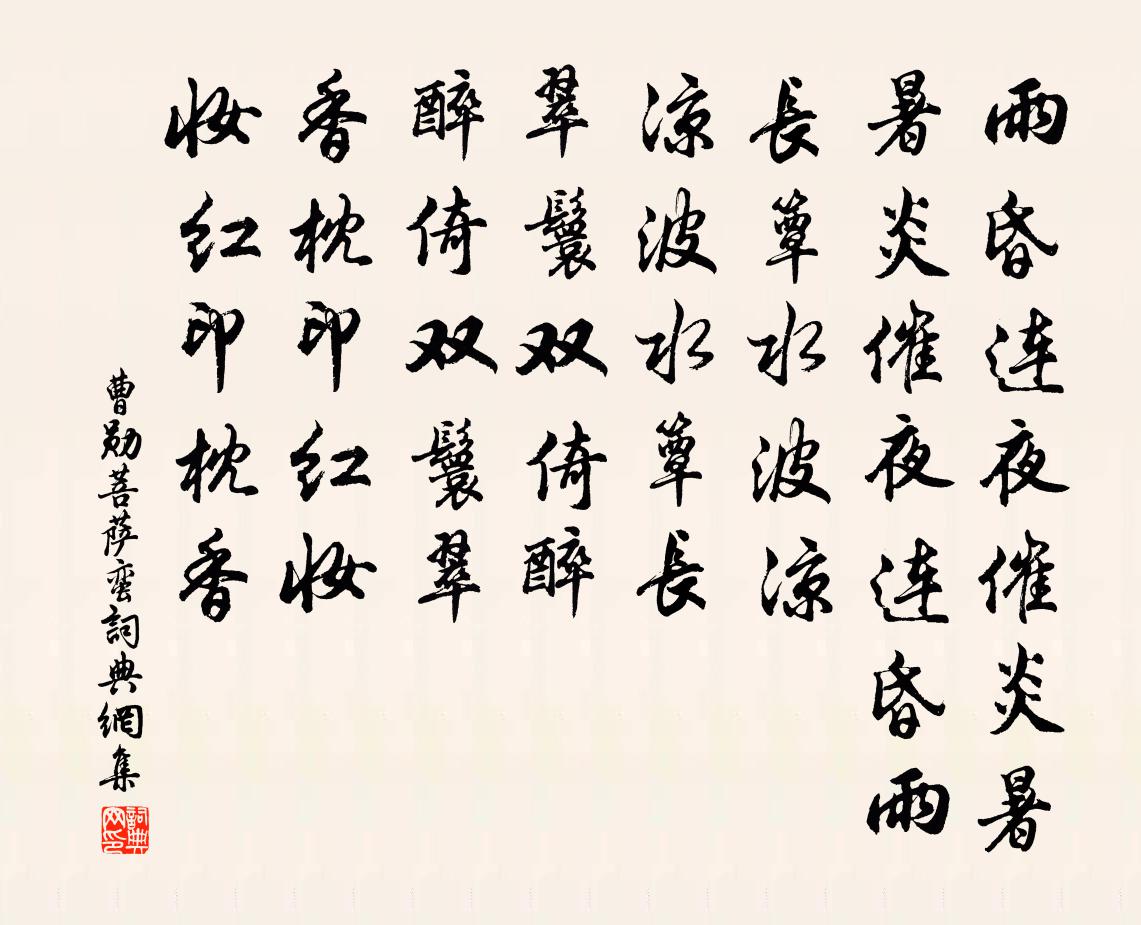 雨昏连夜催炎暑
暑炎催夜连昏雨
長簟水波凉
凉波水簟長
翠鬟双倚醉
醉倚双鬟翠
香枕印红妆
妆红印枕香
曹勛菩萨蛮詞典網集
詞典网印